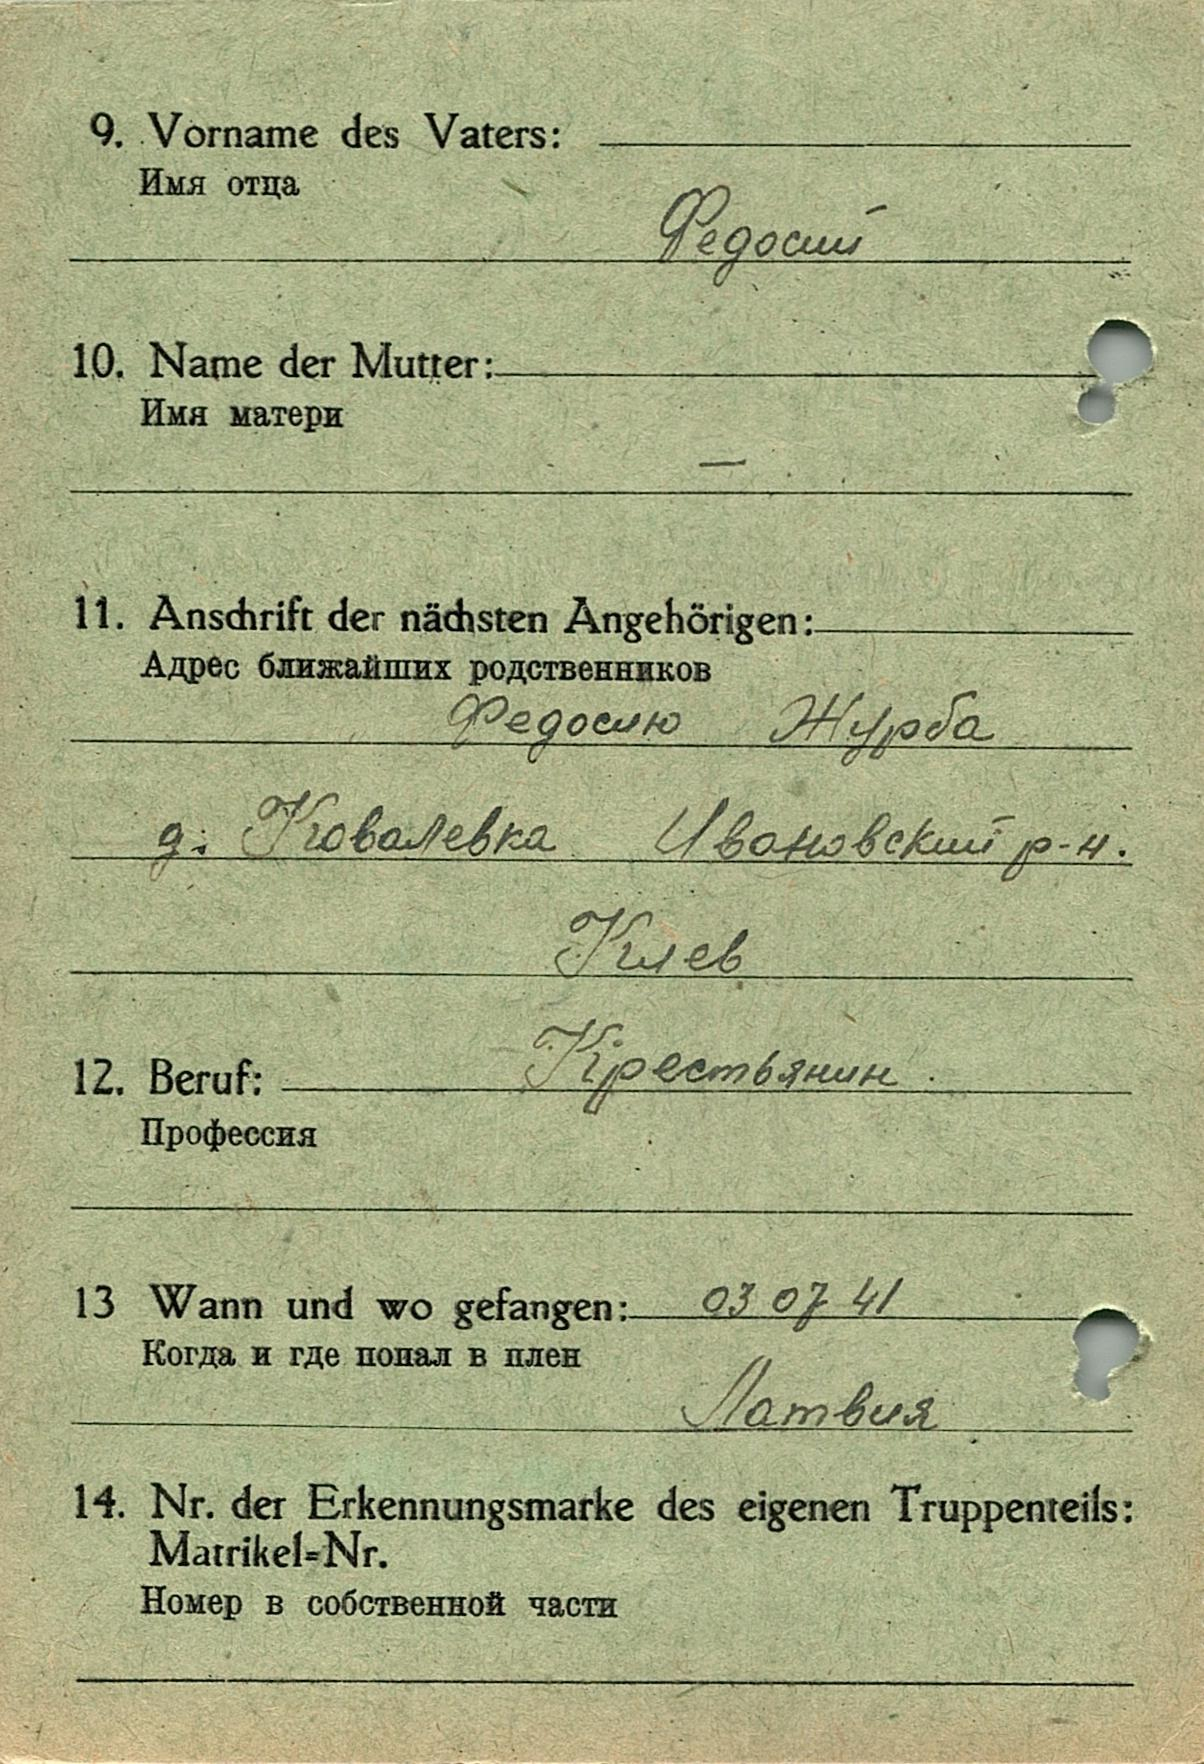 9. Vorname des Vaters:
Имя отца
Федосий
10. Name der Mutter:
Имя матери
—
11. Anschrift der nächsten Angehörigen:
Адрес ближайших родственников
Федосию Журба
д: Ковалевка Ивановский р-н.
Киев
12. Beruf: Крестьянин.
Профессия
13 Wann und wo gefangen: 03 07 41
Когда и где попал в плен
Латвия
14. Nr. der Erkennungsmarke des eigenen Truppenteils:
Matrikel=Nr.
Номер в собственной части